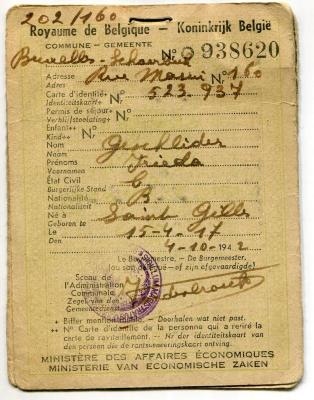 202/160
Royaume de Belgique — Koninkrijk België
COMMUNE – GEMEENTE
Nº O 938620
Bruxelles-Schaerbeek
Adresse Rue Masui Nº 160
Adres
Carte d'identité+ Nr 523.937
Identiteitskaart+
Permis de séjour+ Nr
Verblijfstoelating+
Enfant++ Nr
Kind++
Nom
Naam
Prénoms Frieda
Voornamen
État Civil C
Burgerlijke Stand
Nationalité B
Nationaliteit
Né à Saint Gilles
Geboren te
Le 15-4-17
Den 4-10-1942
Le Bourgmestre, — De Burgemeester,
(ou son délégué — of zijn afgevaardigde)
Sceau de
l'Administration
Communale
Zegel van den
Gemeentedienst
+ Biffer mention inutile — Doorhalen wat niet past.
++ Nº Carte d'identité de la personne qui a retiré la
carte de ravitaillement. — Nr der identiteitskaart van
den persoon die de rantsoeneringskaart ontving.
MINISTÈRE DES AFFAIRES ÉCONOMIQUES
MINISTERIE VAN ECONOMISCHE ZAKEN